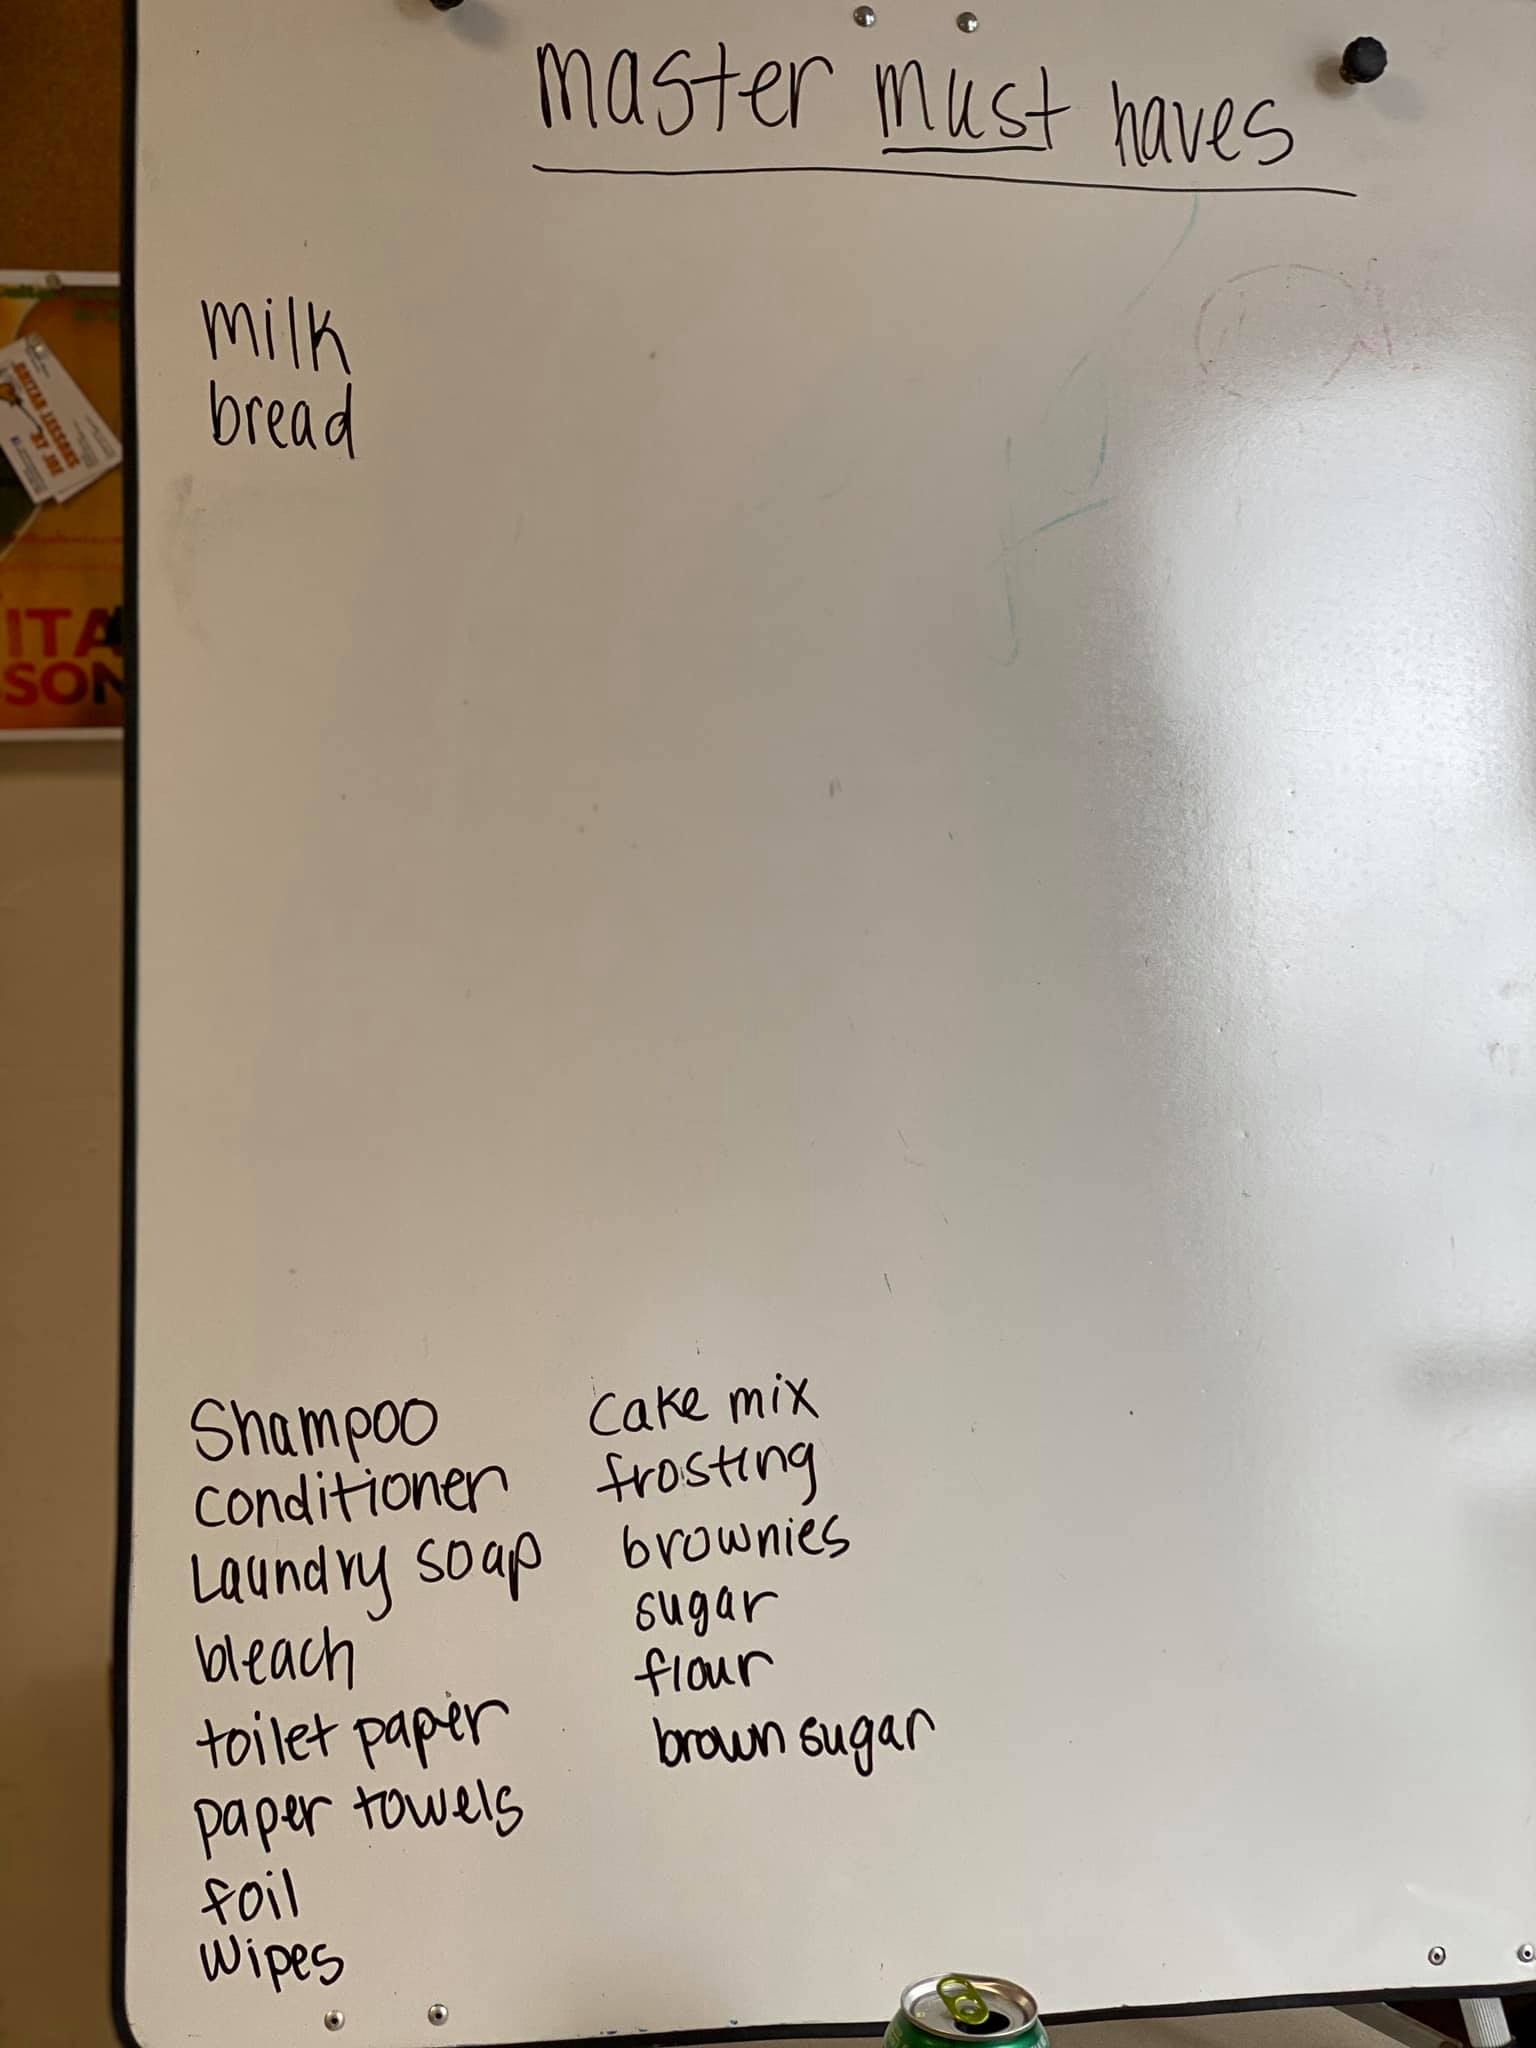 master must haves
milk
bread
Shampoo
conditioner
Laundry soap
bleach
toilet paper
paper towels
foil
wipes
cake mix
frosting
brownies
sugar
flour
brown sugar
GUITAR LESSONS
BY JOE
ITA
SON